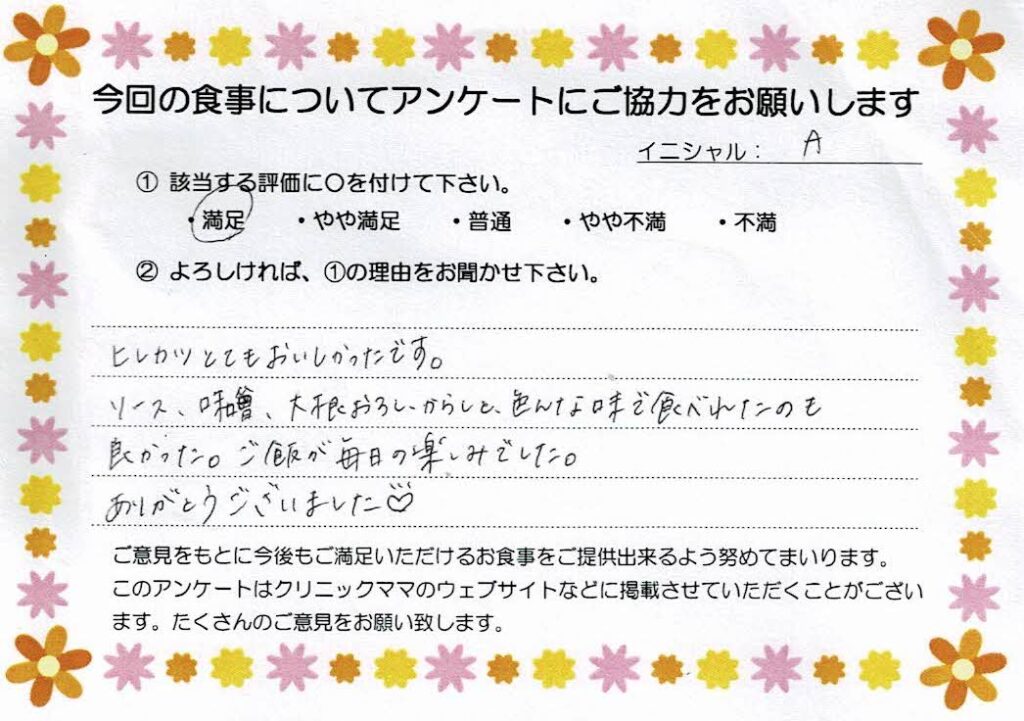 今回の食事についてアンケートにご協力をお願いします
イニシャル： A
① 該当する評価に〇を付けて下さい。
・満足 ・やや満足 ・普通 ・やや不満 ・不満
② よろしければ、①の理由をお聞かせ下さい。
ヒレカツとてもおいしかったです。
ソース、味噌、大根おろし、からしと、色んな味で食べれたのも
良かった。ご飯が毎日の楽しみでした。
ありがとうございました♡
ご意見をもとに今後もご満足いただけるお食事をご提供出来るよう努めてまいります。
このアンケートはクリニックママのウェブサイトなどに掲載させていただくことがござい
ます。たくさんのご意見をお願い致します。